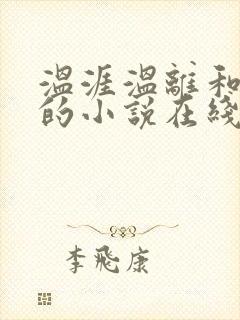 温涯温離和
的小說在綫
李飛康